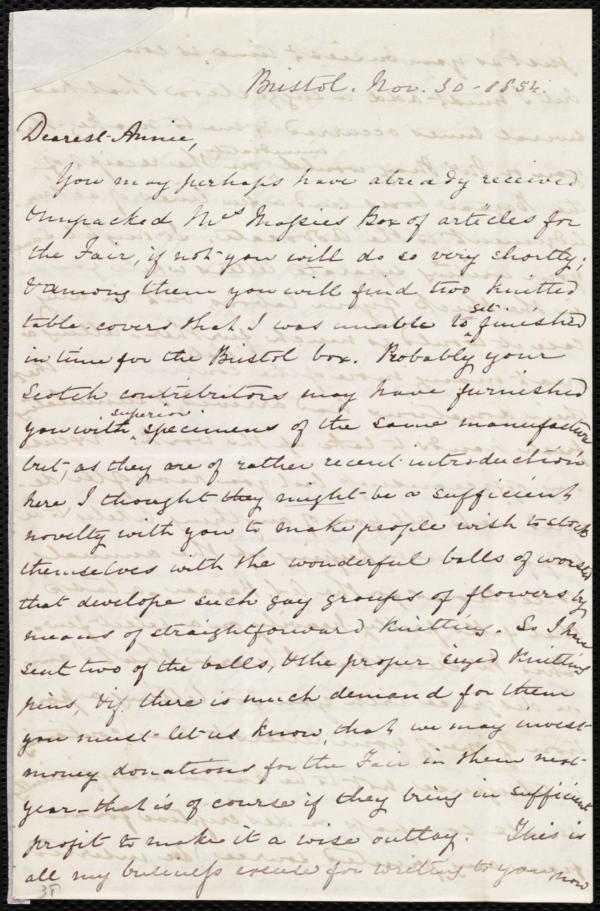 Bristol. Nov. 30 - 1854.
Dearest Annie,
You may perhaps have already received
& unpacked Mrs Massies Box of articles for
the Fair, if not you will do so very shortly;
& among them you will find two knitted
table-covers that I was unable to get finished
in time for the Bristol box. Probably your
Scotch contributors may have furnished
you with superior specimens of the same manufacture
but, as they are of rather recent introduction
here, I thought they might be a sufficient
novelty with you to make people wish to stock
themselves with the wonderful balls of worsted
that develope such gay groups of flowers by
means of straightforward knitting. So I have
sent two of the balls, & the proper sized knitting
pins, & if there is much demand for them
you must let us know, that we may invest
money donations for the Fair in them next
year - that is of course if they bring in sufficient
profit to make it a wise outlay. This is
all my business excuse for writing to you now